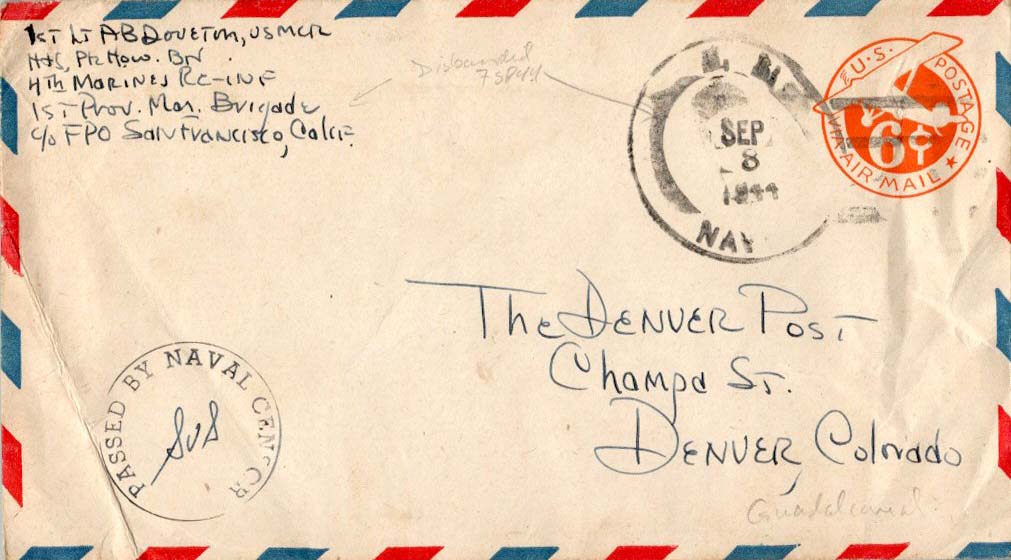 1ST LT AB DOUETON, USMCR
H+S, Pk How. BN
4TH MARINES RE-INF
1ST Prov. Mar. Brigade
c/o FPO San Francisco, Calif.
Disbanded
7SP44
SEP
8
1944
NAV
U.S. POSTAGE
6¢
VIA-AIR-MAIL
The DENVER POST
Champa ST.
DENVER, Colorado
PASSED BY NAVAL CENSOR
Guadalcanal